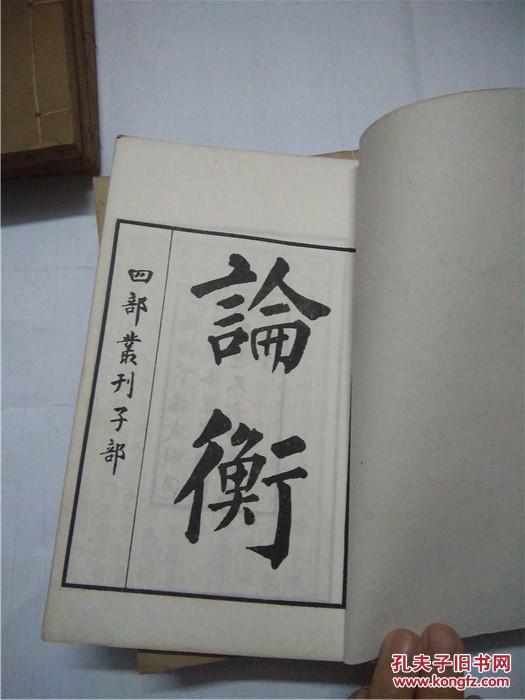 論衡
四部叢刊子部
孔夫子旧书网
www.kongfz.com